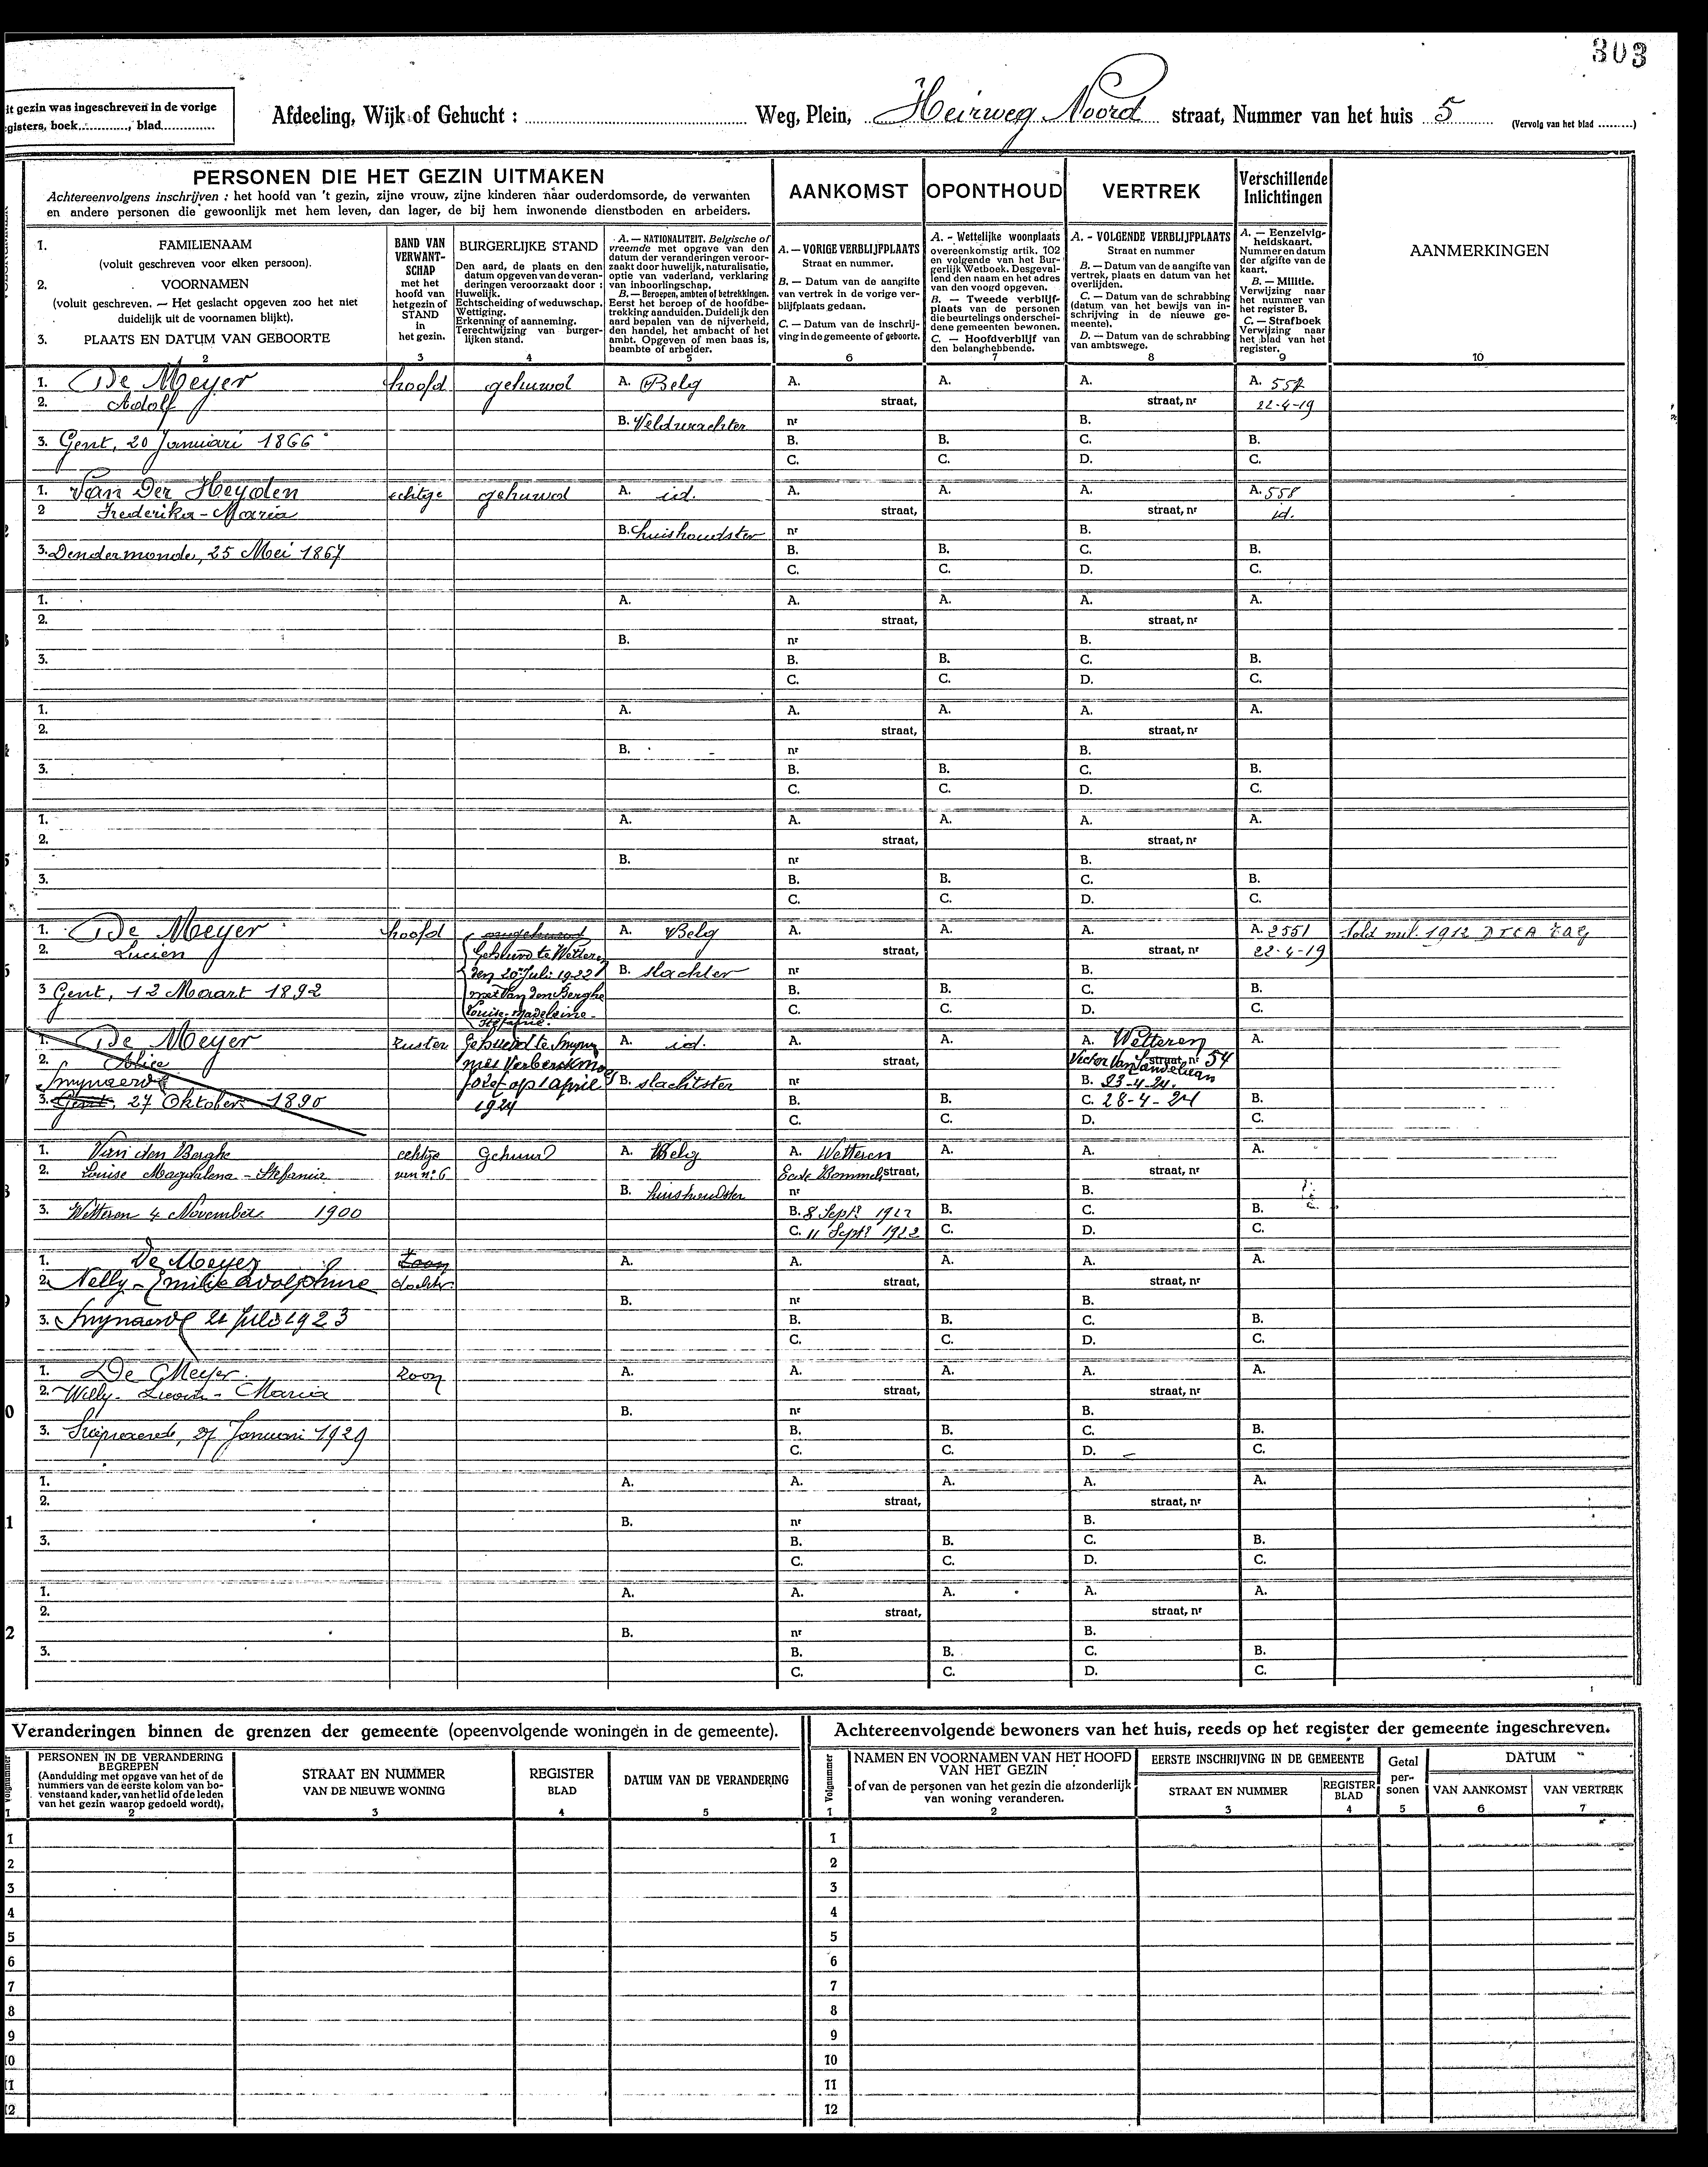 303
it gezin was ingeschreven in de vorige
gisters, boek............, blad..............
Afdeeling, Wijk of Gehucht : .......... Weg, Plein, Heirweg Noord straat, Nummer van het huis 5 (Vervolg van het blad .........)
PERSONEN DIE HET GEZIN UITMAKEN
Achtereenvolgens inschrijven : het hoofd van 't gezin, zijne vrouw, zijne kinderen naar ouderdomsorde, de verwanten
en andere personen die gewoonlijk met hem leven, dan lager, de bij hem inwonende dienstboden en arbeiders.
AANKOMST
OPONTHOUD
VERTREK
Verschillende
Inlichtingen
1. FAMILIENAAM
(voluit geschreven voor elken persoon).
2. VOORNAMEN
(voluit geschreven. — Het geslacht opgeven zoo het niet
duidelijk uit de voornamen blijkt).
3. PLAATS EN DATUM VAN GEBOORTE
2
BAND VAN
VERWANT-
SCHAP
met het
hoofd van
het gezin of
STAND
in
het gezin.
3
BURGERLIJKE STAND
Den aard, de plaats en den
datum opgeven van de veran-
deringen veroorzaakt door :
Huwelijk.
Echtscheiding of weduwschap.
Wettiging.
Erkenning of aanneming.
Terechtwijzing van burger-
lijken stand.
4
A. — NATIONALITEIT. Belgische of
vreemde met opgave van den
datum der veranderingen veroor-
zaakt door huwelijk, naturalisatie,
optie van vaderland, verklaring
van inboorlingschap.
B. — Beroepen, ambten of betrekkingen.
Eerst het beroep of de hoofdbe-
trekking aanduiden. Duidelijk den
aard bepalen van de nijverheid,
den handel, het ambacht of het
ambt. Opgeven of men baas is,
beambte of arbeider.
5
A. — VORIGE VERBLIJFPLAATS
Straat en nummer.
B. — Datum van de aangifte
van vertrek in de vorige ver-
blijfplaats gedaan.
C. — Datum van de inschrij-
ving in de gemeente of geboorte.
6
A. - Wettelijke woonplaats
overeenkomstig artik. 102
en volgende van het Bur-
gerlijk Wetboek. Desgeval-
lend den naam en het adres
van den voogd opgeven.
B. — Tweede verblijf-
plaats van de personen
die beurtelings onderschei-
dene gemeenten bewonen.
C. — Hoofdverblijf van
den belanghebbende.
7
A. - VOLGENDE VERBLIJFPLAATS
Straat en nummer
B. — Datum van de aangifte van
vertrek, plaats en datum van het
overlijden.
C. — Datum van de schrabbing
(datum van het bewijs van in-
schrijving in de nieuwe ge-
meente).
D. — Datum van de schrabbing
van ambtswege.
8
A. — Eenzelvig-
heidskaart.
Nummer en datum
der afgifte van de
kaart.
B. — Militie.
Verwijzing naar
het nummer van
het register B.
C. — Strafboek
Verwijzing naar
het blad van het
register.
9
AANMERKINGEN
10
1. De Meyer hoofd gehuwd A. Belg A. A. A. A. 557
2. Adolf straat, straat, nr 22-4-19
B. Veldwachter nr B.
3. Gent, 20 Januari 1866 B. B. C. B.
C. C. D. C.
1. Van Der Heyden echtge gehuwd A. id. A. A. A. A. 558
2 Frederika - Maria straat, straat, nr id.
B. huishoudster nr B.
3. Dendermonde, 25 Mei 1867 B. B. C. B.
C. C. D. C.
1. A. A. A. A. A.
2. straat, straat, nr
B. nr B.
3. B. B. C. B.
C. C. D. C.
1. A. A. A. A. A.
2. straat, straat, nr
B. nr B.
3. B. B. C. B.
C. C. D. C.
1. A. A. A. A. A.
2. straat, straat, nr
B. nr B.
3. B. B. C. B.
C. C. D. C.
1. De Meyer hoofd ongehuwd A. Belg A. A. A. A. 2551 Sold mil. 1912
2. Lucien Gehuwd te Wetteren straat, straat, nr 22-4-19
den 20 Juli 1922 B. slachter nr B.
3 Gent, 12 Maart 1892 met Van den Berghe B. B. C. B.
Louise-Madeleine- C. C. D. C.
Stefanie.
1. De Meyer zuster Gehuwd te A. id. A. A. A. Wetteren A.
2. Alice met straat, Victor Van straat, nr 54
Jozef op 1 april B. slachtster nr B. 23-4-24.
3. Gent, 27 Oktober 1890 1924 B. B. C. 28-4-24 B.
C. C. D. C.
1. Van den Berghe echtge Gehuwd A. Belg A. Wetteren A. A. A.
2. Louise Magdalena - Stefania van n° 6 straat, straat, nr
B. huishoudster nr B.
3. Wetteren 4 November 1900 B. 8 Sept. 1922 B. C. B.
C. 11 Sept. 1922 C. D. C.
1. De Meyer zoon A. A. A. A. A.
2. Nelly - Emilie Adolphine dochter straat, straat, nr
B. nr B.
3. 21 1923 B. B. C. B.
C. C. D. C.
1. De Meyer zoon A. A. A. A. A.
2. Willy - Maria straat, straat, nr
0 B. nr B.
3. 27 Januari 1929 B. B. C. B.
C. C. D. C.
1. A. A. A. A. A.
2. straat, straat, nr
1 B. nr B.
3. B. B. C. B.
C. C. D. C.
1. A. A. A. A. A.
2. straat, straat, nr
2 B. nr B.
3. B. B. C. B.
C. C. D. C.
Veranderingen binnen de grenzen der gemeente (opeenvolgende woningen in de gemeente).
Volgnummer
1
PERSONEN IN DE VERANDERING
BEGREPEN
(Aanduiding met opgave van het of de
nummers van de eerste kolom van bo-
venstaand kader, van het lid of de leden
van het gezin waarop gedoeld wordt).
2
STRAAT EN NUMMER
VAN DE NIEUWE WONING
3
REGISTER
BLAD
4
DATUM VAN DE VERANDERING
5
1
2
3
4
5
6
7
8
9
10
11
12
Achtereenvolgende bewoners van het huis, reeds op het register der gemeente ingeschreven.
Volgnummer
1
NAMEN EN VOORNAMEN VAN HET HOOFD
VAN HET GEZIN
of van de personen van het gezin die afzonderlijk
van woning veranderen.
2
EERSTE INSCHRIJVING IN DE GEMEENTE
STRAAT EN NUMMER
3
REGISTER
BLAD
4
Getal
per-
sonen
5
DATUM
VAN AANKOMST
6
VAN VERTREK
7
1
2
3
4
5
6
7
8
9
10
11
12